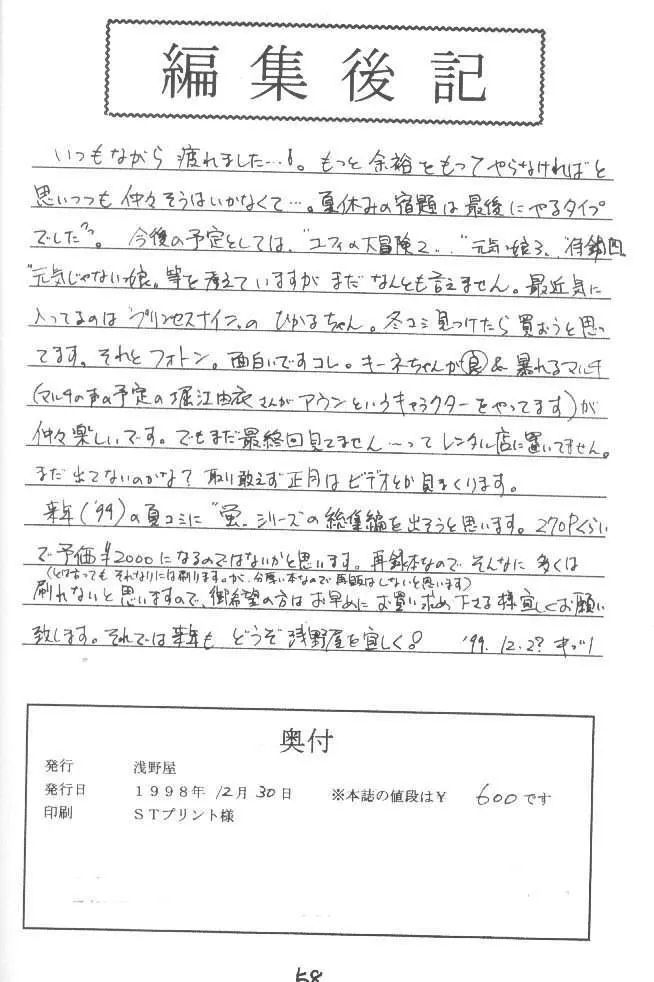 編集後記
いつもながら 疲れました…。もっと 余裕をもって やらなければと
思いつつも 仲々そうはいかなくて…。夏休みの宿題は最後にやるタイプ
でした。 今後の予定としては、"ユフィの大冒険2" "元気っ娘3"
"元気じゃないっ娘"等を考えていますが まだ なんとも言えません。最近気に
入ってるのは"プリンセスナイン"の ひかるちゃん。冬コミ見つけたら買おうと思っ
てます。それと フォトン。面白いですコレ。キーネちゃんが良&暴れるマルチ
(マルチの声の予定の堀江由衣さんが アウンというキャラクターをやってます)が
仲々楽しいです。でもまだ最終回見てません…って レンタル店に置いてません。
まだ出てないのかな? 取り敢えず正月はビデオとか見まくります。
来年('99)の夏コミに"蛍"シリーズの総集編を出そうと思います。270Pくらい
で予価¥2000になるのではないかと思います。再録本なので そんなに多くは
(とは言っても それなりには刷りますが、分厚い本なので再販はしないと思います)
刷れないと思いますので、御希望の方はお早めにお買い求め下さる様宜しくお願い
致します。それでは来年も どうぞ 浅野屋を宜しく! '99.12.2?
奥付
発行 浅野屋
発行日 1998年 12月 30日 ※本誌の値段は¥ 600です
印刷 STプリント様
58